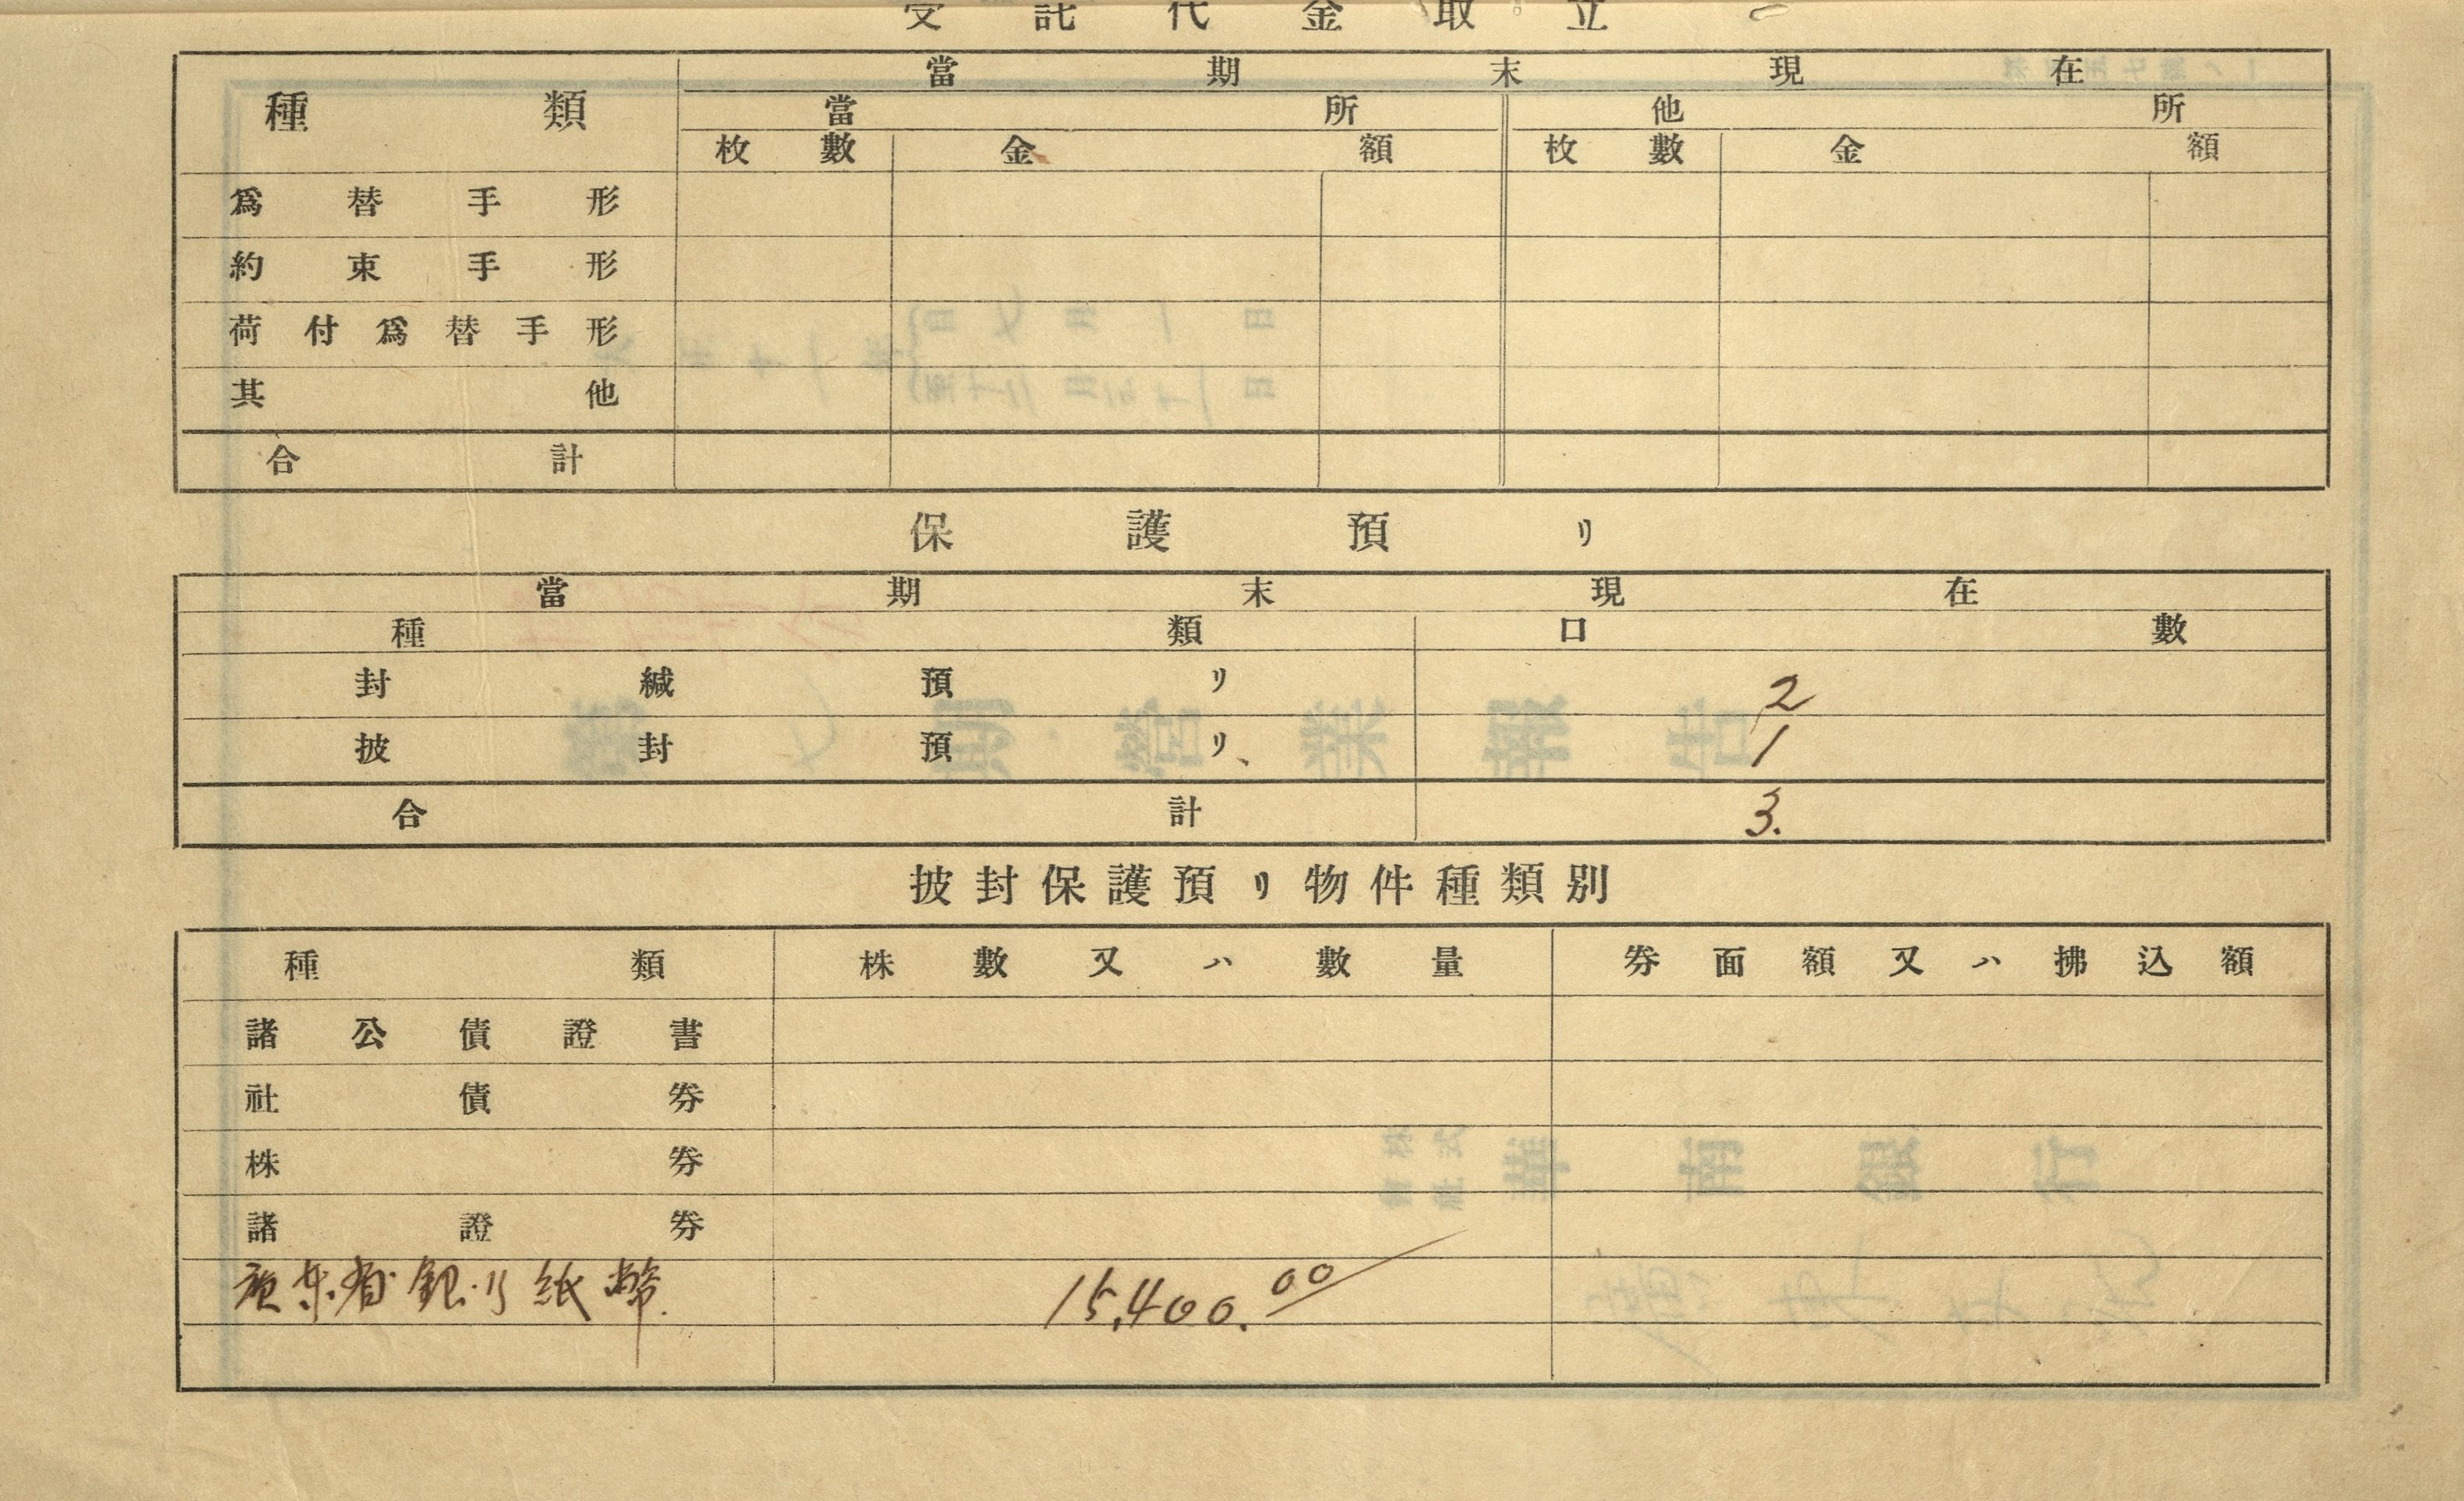 受託代金取立
種類 當期末現在
當所 他所
枚數 金額 枚數 金額
爲替手形
約束手形
荷付爲替手形
其他
合計
保護預リ
當期末現在
種類 口數
封緘預リ 2
披封預リ 1
合計 3.
披封保護預リ物件種類別
種類 株數又ハ數量 券面額又ハ拂込額
諸公債證書
社債券
株券
諸證券
廣东省銀行紙幣. 15,400.00